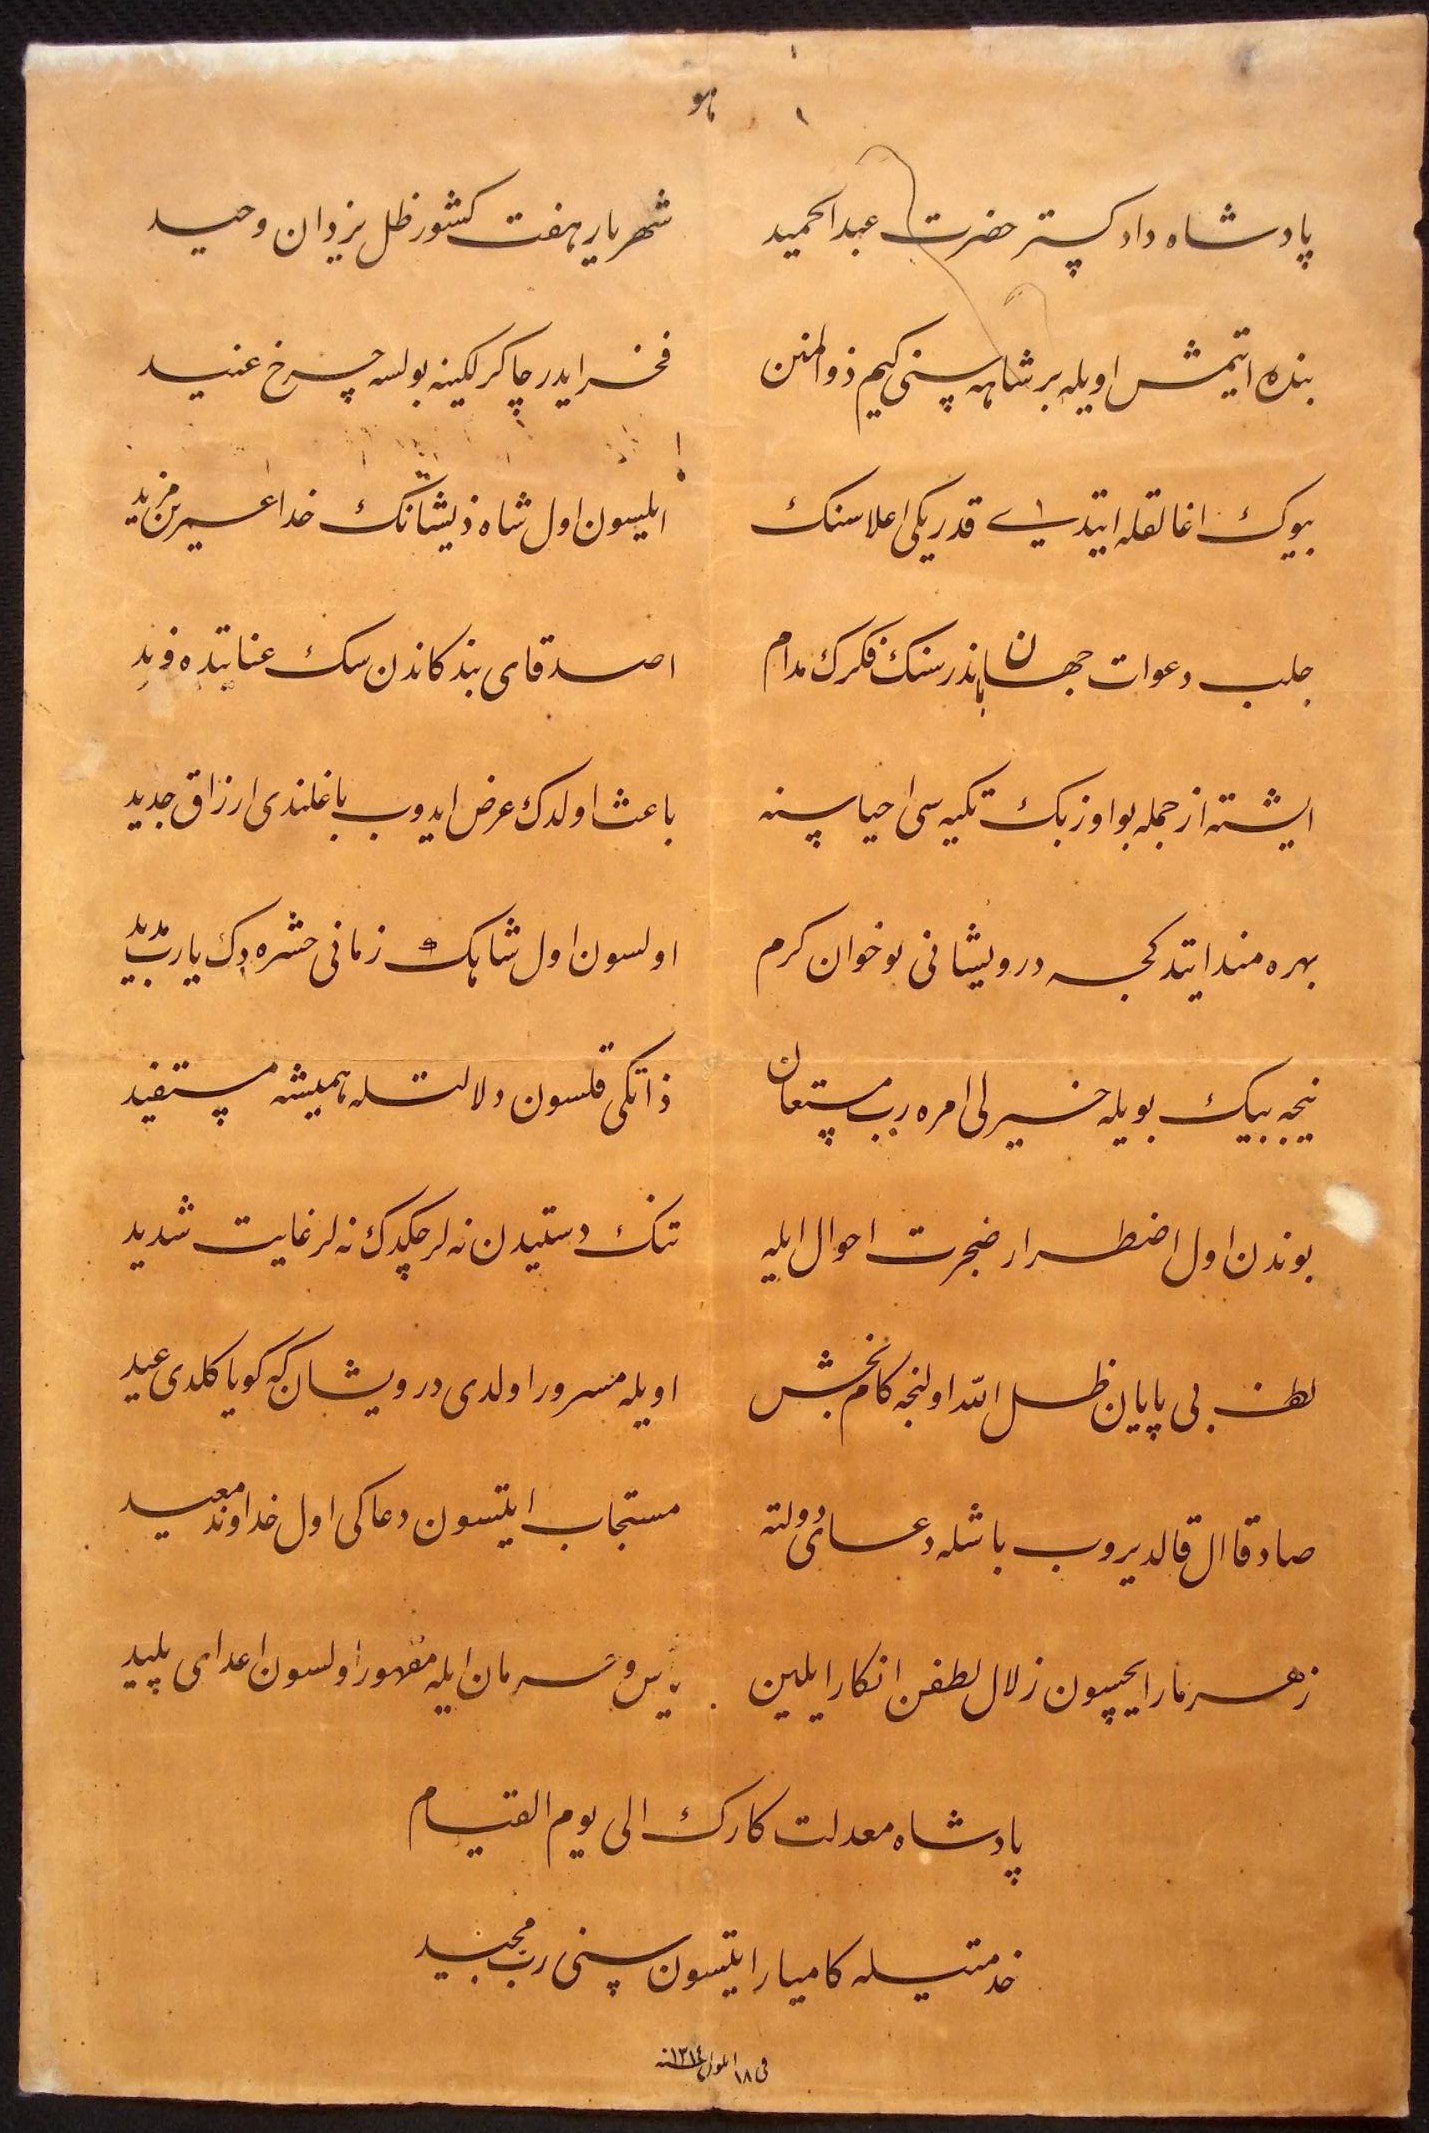 هو
پادشاه دادكستر حضرت عبدالحميد شهريار هفت كشور ظل يزدان وحيد
بنده ايتمش اويله بر شاهه سنى كيم ذوالمنن فخر ايدر چاكرلكينه بولسه چرخ عنيد
بيوك اغالقله ايتدى قدريكى اعلا سنك ايلسون اول شاه ذيشانك خدا عمرين مزيد
جلب دعوات جهانباندر سنك فكرك مدام اصدقاى بندكاندن سك عنايتده فريد
ايشته از جمله بو اوزبك تكيه سى احياسنه باعث اولدك عرض ايدوب باغلندى ارزاق جديد
بهره مند ايتدكجه درويشانى بو خوان كرم اولسون اول شاهك زمانى حشره دك يارب مديد
نيجه بيك بويله خيرلى امره رب مستعان ذاتكى قلسون دلالتله هميشه مستفيد
بوندن اول اضطرار ضجرت احوال ايله تنك دستيدن نه لر چكدك نه لر غايت شديد
لطف بى پايان ظل الله اولنجه كام بخش اويله مسرور اولدى درويشان كه كويا كلدى عيد
صادقا ال قالديروب باشله دعاى دولته مستجاب ايتسون دعاكى اول خداوند معيد
زهر مار ايچسون زلال لطفن انكار ايلين يأس و حرمان ايله مقهور اولسون اعداى پليد
پادشاه معدلت كارك الى يوم القيام
خدمتيله كاميار ايتسون سنى رب مجيد
فى ١٨ ايلول سنه ١٣١٤